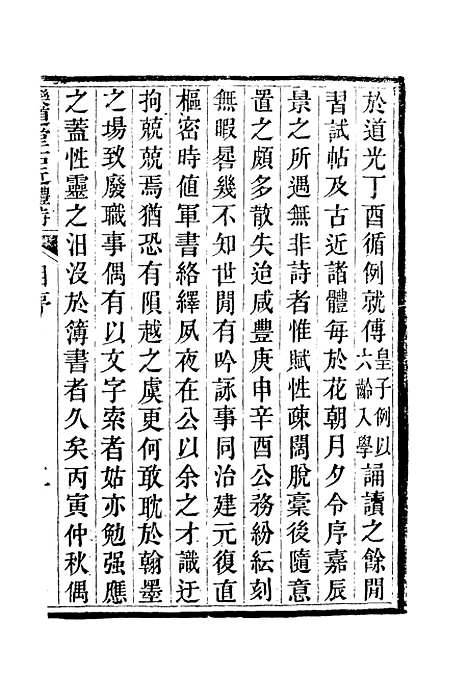 於道光丁酉循例就傅皇子例以六齡入學誦讀之餘閒
習試帖及古近諸體每於花朝月夕令序嘉辰
景之所遇無非詩者惟賦性疎闊脫稾後隨意
置之頗多散失迨咸豐庚申辛酉公務紛紜刻
無暇晷幾不知世閒有吟詠事同治建元復直
樞密時值軍書絡繹夙夜在公以余之才識迂
拘兢兢焉猶恐有隕越之虞更何敢耽於翰墨
之場致廢職事偶有以文字索者姑亦勉强應
之蓋性靈之汨沒於簿書者久矣丙寅仲秋偶
樂道堂古近體詩
自序